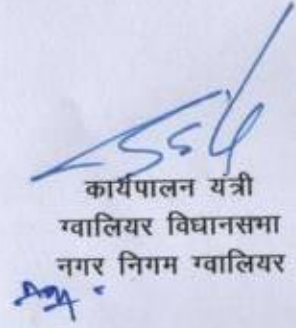 कार्यपालन यंत्री
ग्वालियर विधानसभा
नगर निगम ग्वालियर